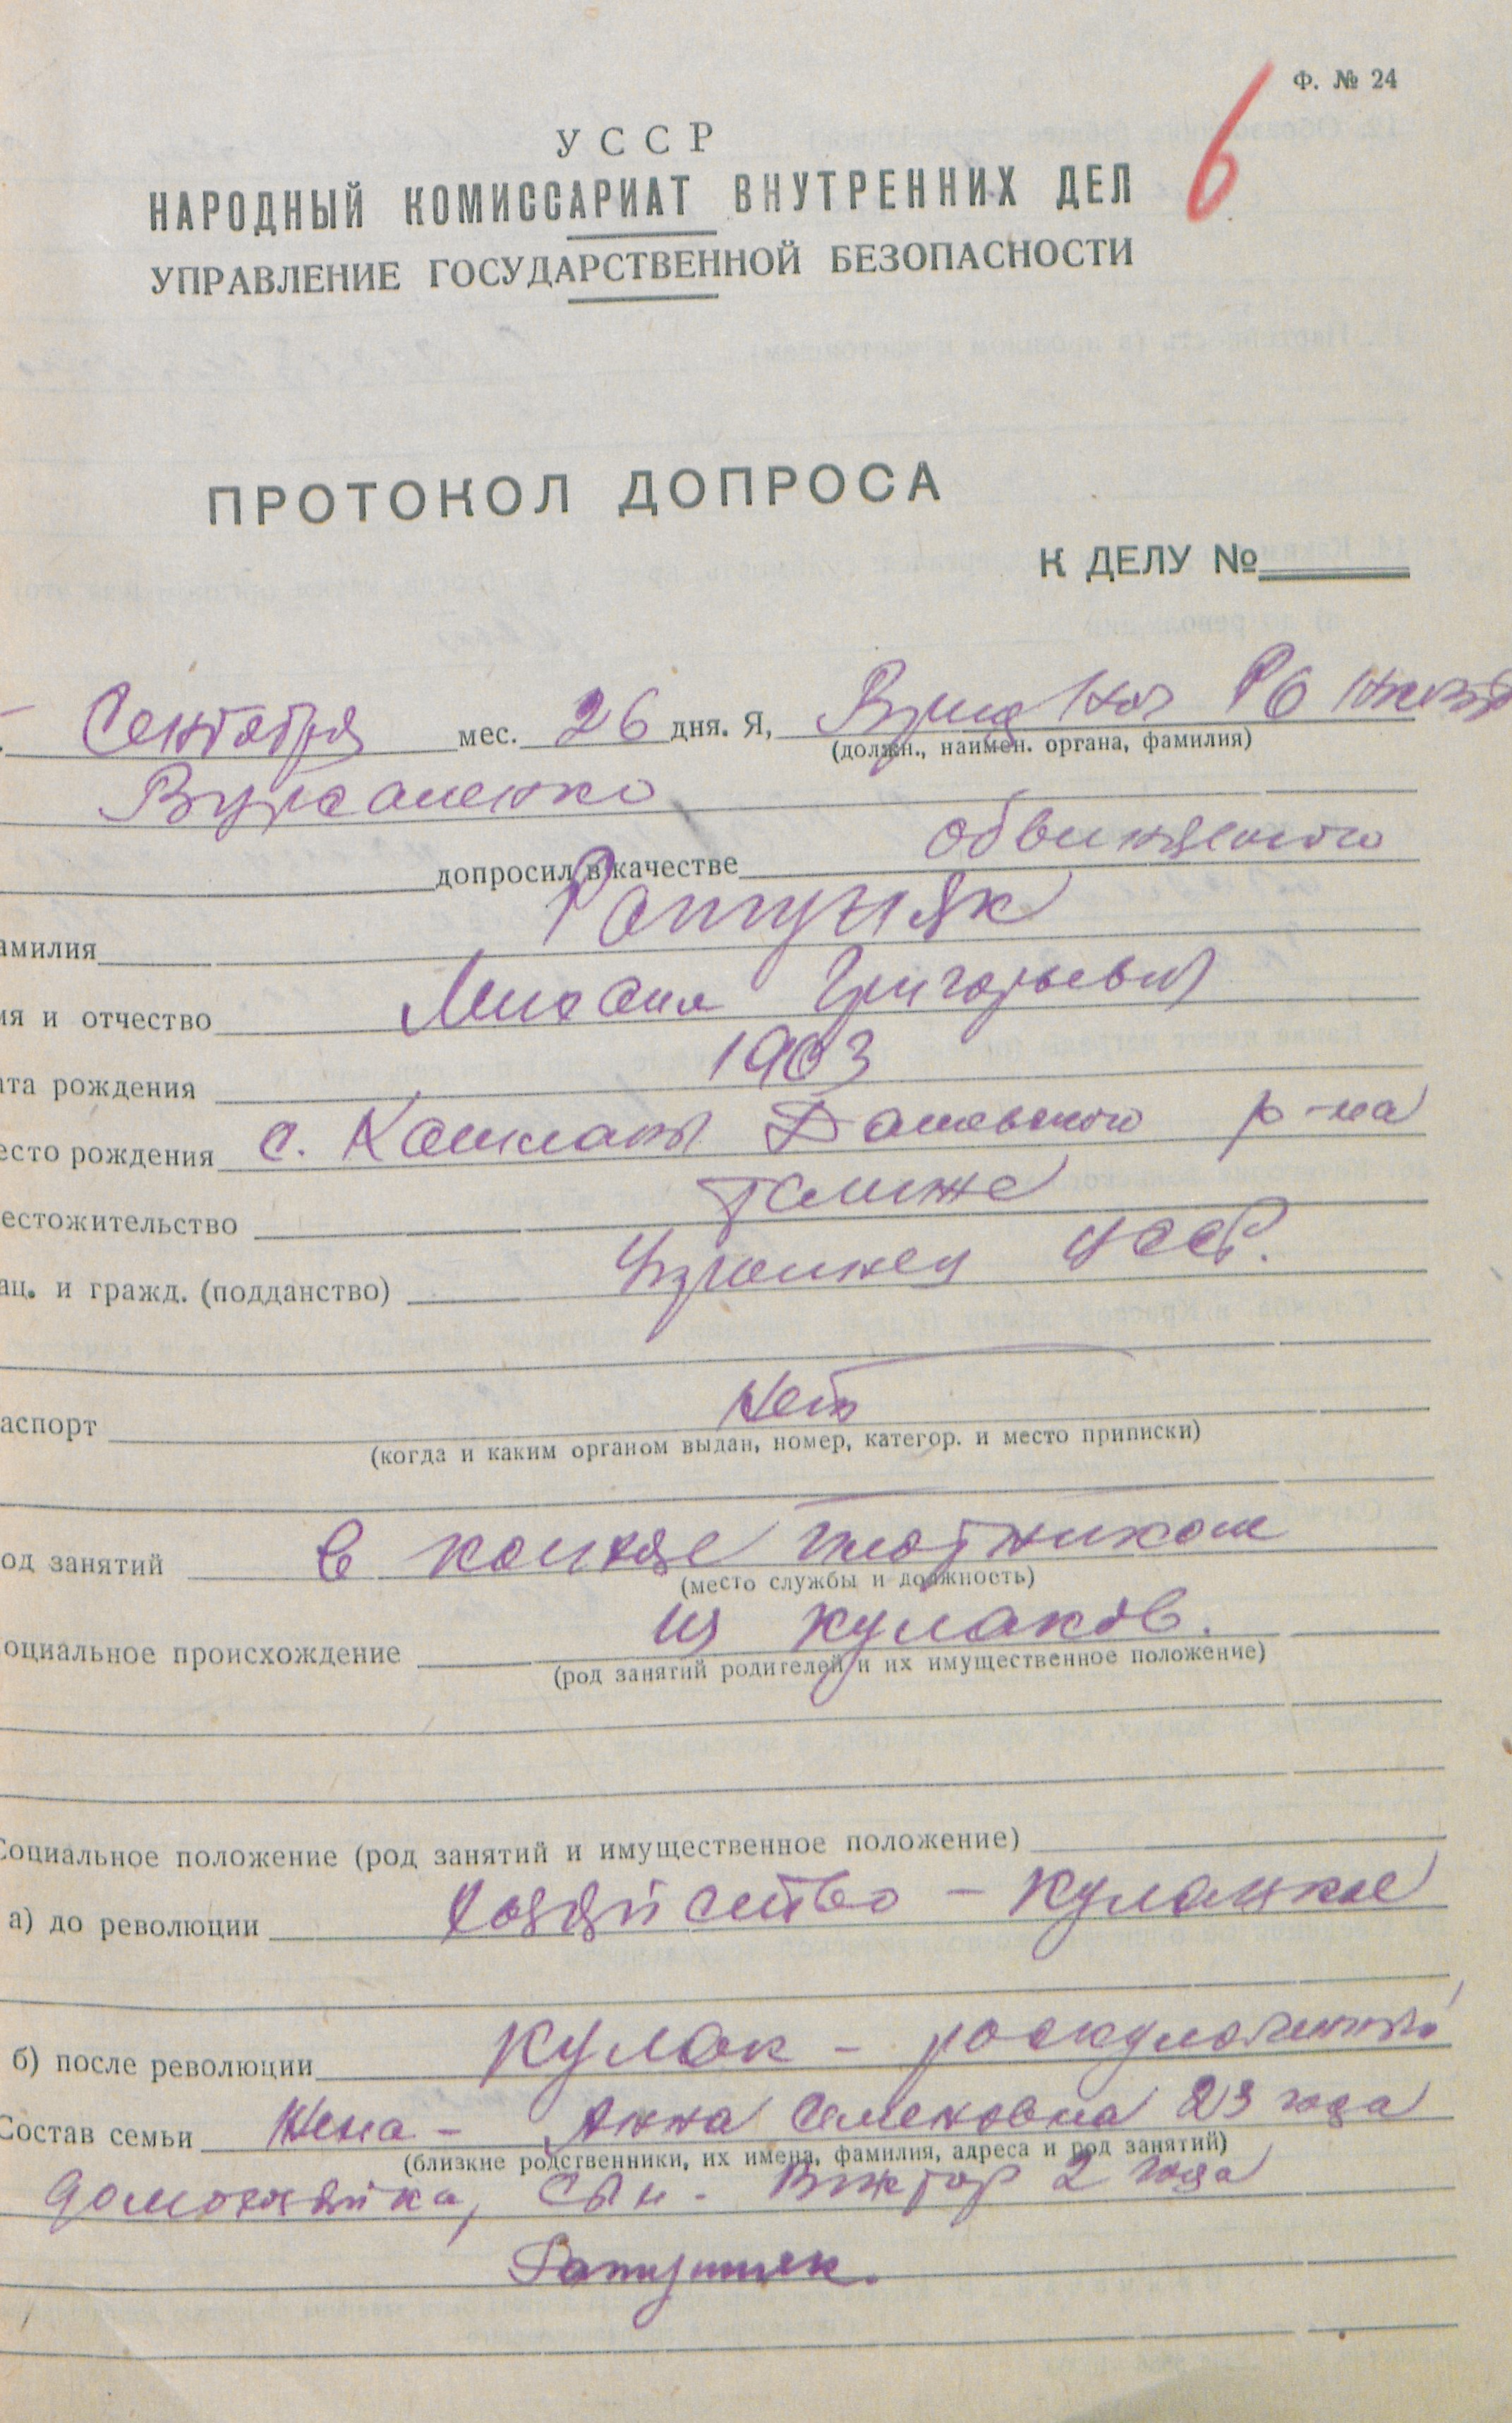 Ф. № 24
6
УССР
НАРОДНЫЙ КОМИССАРИАТ ВНУТРЕННИХ ДЕЛ
УПРАВЛЕНИЕ ГОСУДАРСТВЕННОЙ БЕЗОПАСНОСТИ
ПРОТОКОЛ ДОПРОСА
К ДЕЛУ №
Сентября мес. 26 дня. Я, Врид Нач РО НКВД
(должн., наимен. органа, фамилия)
допросил в качестве обвиняемого
амилия Ратушняк
мя и отчество Михаил Григорьевич
ата рождения 1903
есто рождения с. Дашевского р-на
естожительство там же
ац. и гражд. (подданство) Украинец УССР.
аспорт Нет
(когда и каким органом выдан, номер, категор. и место приписки)
од занятий в колхозе плотником
(место службы и должность)
оциальное происхождение из кулаков.
(род занятий родителей и их имущественное положение)
Социальное положение (род занятий и имущественное положение)
а) до революции Хозяйство - Кулацкое
б) после революции Кулак - раскулаченный
Состав семьи Жена - Анна Семеновна 23 года
(близкие родственники, их имена, фамилия, адреса и род занятий)
домохозяйка, Сын - Виктор 2 года
Ратушняк.